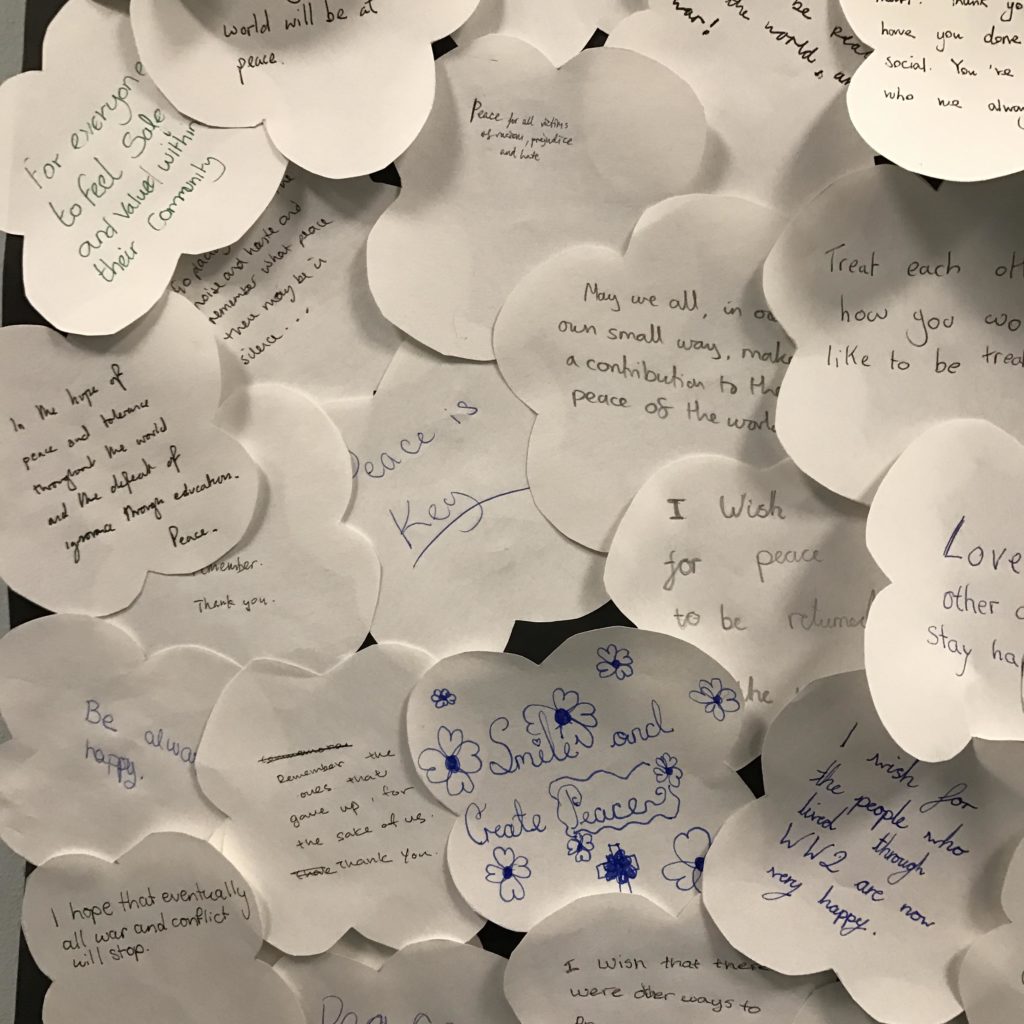 world will be at
peace.
For everyone
to feel Safe
and valued within
their Community
Peace for all victims
of racism, prejudice
and hate
be
the world,
war!
Thank you
have you done
social. You've
who we
noise and haste and
remember what peace
there may be in
silence....
May we all, in
own small way, make
a contribution to the
peace of the world
Treat each
how you
like to be
In the hope of
peace and tolerance
throughout the world
and the defeat of
ignorance through education.
Peace.
Peace is
Key
remember.
Thank you.
I Wish
for peace
to be returned
the
Love
other
stay
Be
happy.
Remember the
ones that
gave up, for
the sake of us.
Thank You.
Smile and
Create Peace
I wish for
the people who
lived through
WW2 are now
very happy.
I hope that eventually
all war and conflict
will stop.
I wish that
were other ways to